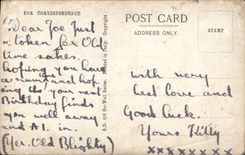 FOR CORRESPONDENCE
POST CARD
ADDRESS ONLY.
STAMP
Dear Joe Just
a token for Old
time sakes
hoping you have
a and hop
ing the your next
Birthday finds
you well away
and A.I. in
(Yer. Old Blighty)
with very
best love and
Good luck.
Yours Kitty
xxxxxxxx